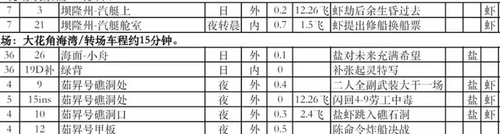 7 3 坝隆州·汽艇上 日 外 0.2 12.26飞 虾劫后余生昏过去 虾
7 21 坝隆州·汽艇舱室 夜转晨 内 0.7 1.5飞 虾提出修船换船票 虾
场：大花角海湾/转场车程约15分钟。
36 26 海面·小舟 日 外 0.1 盐对未来充满希望 盐
36 19D补 绿背 日 内 0 补张起灵特写
4 9 茹昇号礁洞处 夜 外 0.4 二人全副武装大干一场 盐 虾
4 15ins 茹昇号礁洞处 夜 外 0 12.26飞 闪回4-9劳工中毒 盐 虾
4 10 茹昇号礁洞口 夜 外 0.3 2.4飞 盐虾跳入礁石洞 盐 虾
4 12 茹昇号甲板 夜 外 0.5 陈命令炸船决战